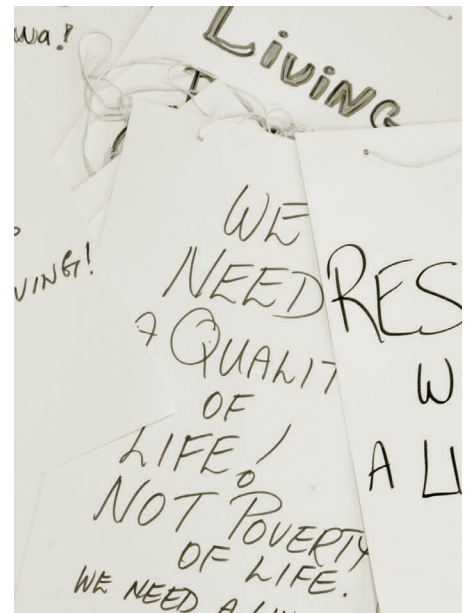 wa!
LiViNG
VING!
WE
NEED
A QUALIT
OF
LIFE!
NOT POVERTY
OF LIFE.
WE NEED A
RES
W
A LI